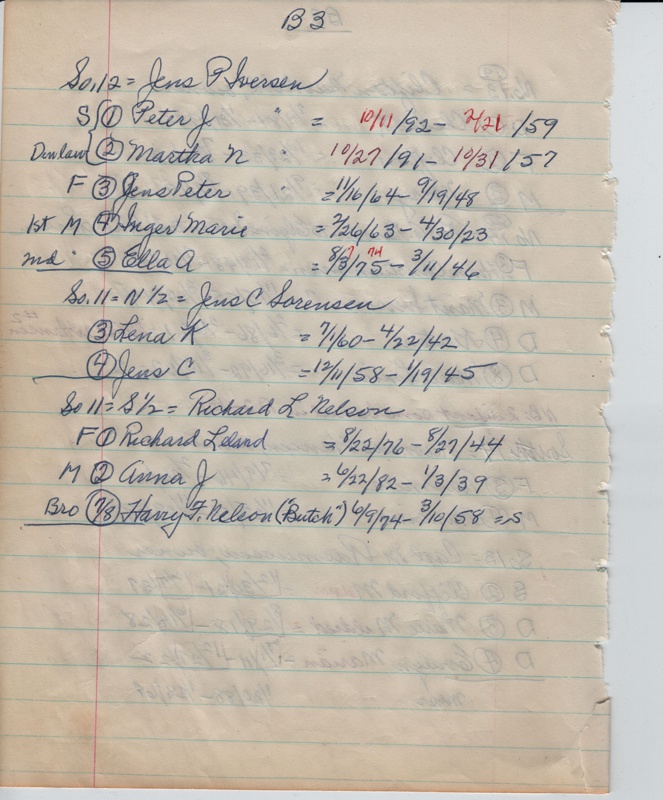 B3
So. 12 = Jens P. Iversen
S ① Peter J. " = 10/11/92 - 2/21/59
D in law ② Martha N " 10/27/91 - 10/31/57
F ③ Jens Peter " = 11/16/64 - 9/19/48
1st M ④ Inger Marie = 2/26/63 - 4/30/23
2nd " ⑤ Ella A = 8/3/75 - 3/11/46
So. 11 = N 1/2 = Jens C Sorensen
③ Lena K = 7/1/60 - 4/22/42
④ Jens C = 12/11/58 - 1/19/45
So 11 = S 1/2 = Richard L Nelson
F ① Richard Leland = 8/22/76 - 8/27/44
M ② Anna J = 6/22/82 - 1/3/39
Bro 7/8 Harry F. Nelson ("Butch") 6/9/74 - 3/10/58 = S